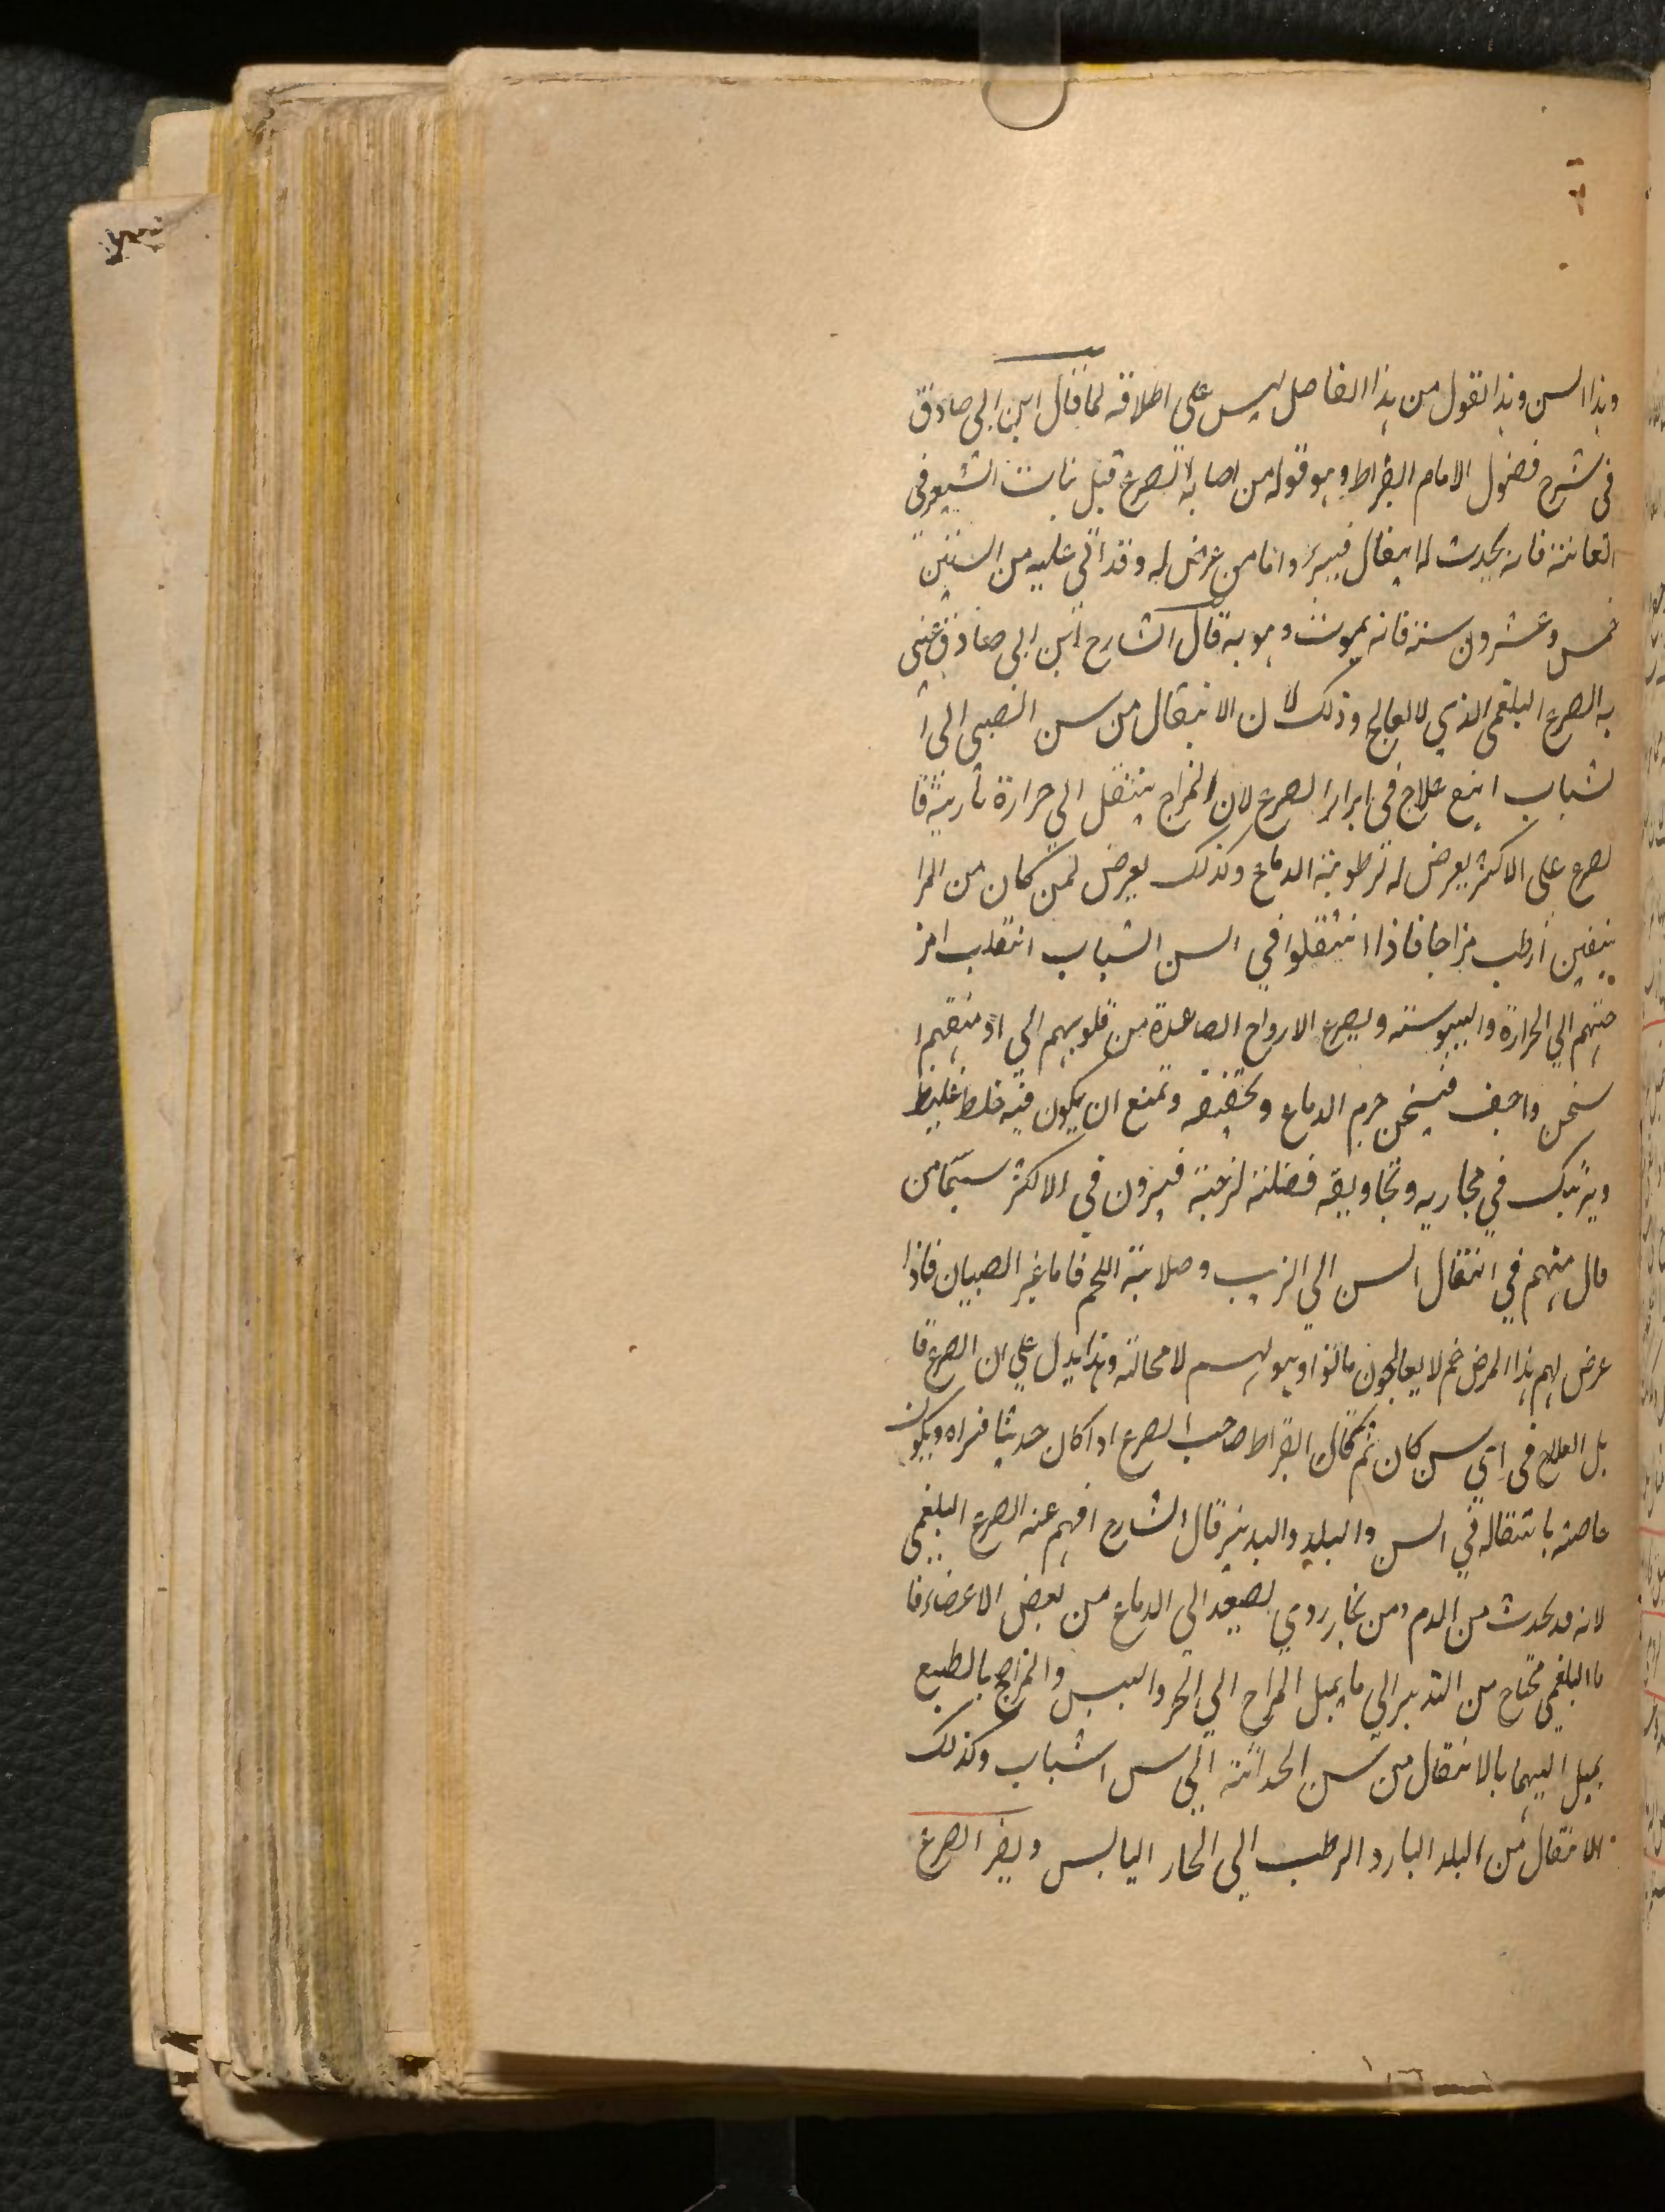 وهذا السن وهذا القول من هذا الفاضل ليس على اطلاقه لما قال ابن ابي صادق
في شرح فصول الامام ابقراط وهو قوله من اصابه الصرع قبل نبات الشعر في
العانة فانه يحدث له انتقال فيبرء واما من عرض له وقد اتى عليه من السنين
خمس وعشرون سنة فانه يموت وهو به قال الشارح ابن ابي صادق عني
به الصرع البلغمي الذي لا يعالج وذلك لان الانتقال من سن الصبى الى ا
لشباب انبع علاج في ابراء الصرع لان المزاج ينتقل الي حرارة نارية فا
لصرع على الاكثر يعرض له لرطوبة الدماغ وكذلك يعرض لمن كان من المرا
هقين ارطب مزاجا فاذا انتقلوا في السن الشباب انتقلب امز
جتهم الي الحرارة واليبوسته ويصير الارواح الصاعدة من قلوبهم الي ادمغتهم ا
سخن واجف فيسخن جرم الدماغ وتجففه وتمنع ان يكون فيه خلط غليظ
ويرتبك في مجاريه وتجاويفه فضلة لزجة فيبرون في الاكثر سيما من
مال منهم في انتقال السن الي الزبب وصلابة اللحم فاما غير الصبيان فاذا
عرض لهم هذا المرض ثم لا يعالجون ماتوا وهو بهم لا محالة وهذا يدل علي ان الصرع قا
بل العلاج في اي سن كان ثم قال ابقراط صاحب الصرع اذا كان حديثا فبراه ويكون
خاصته بانتقاله في السن والبلد والتدبير قال الشارح افهم عنه الصرع البلغمي
لانه قد يحدث من الدم ومن بخار ردي يصعد الي الدماغ من بعض الاعضاء فا
ما البلغمي محتاج من التدبير الي ما يميل المزاج الي الحر واليبس والمزاج بالطبع
يميل اليهما بالانتقال من سن الحداثة الي سن الشباب وكذلك
الانتقال من البلد البارد الرطب الي الحار اليابس ويضر الصرع